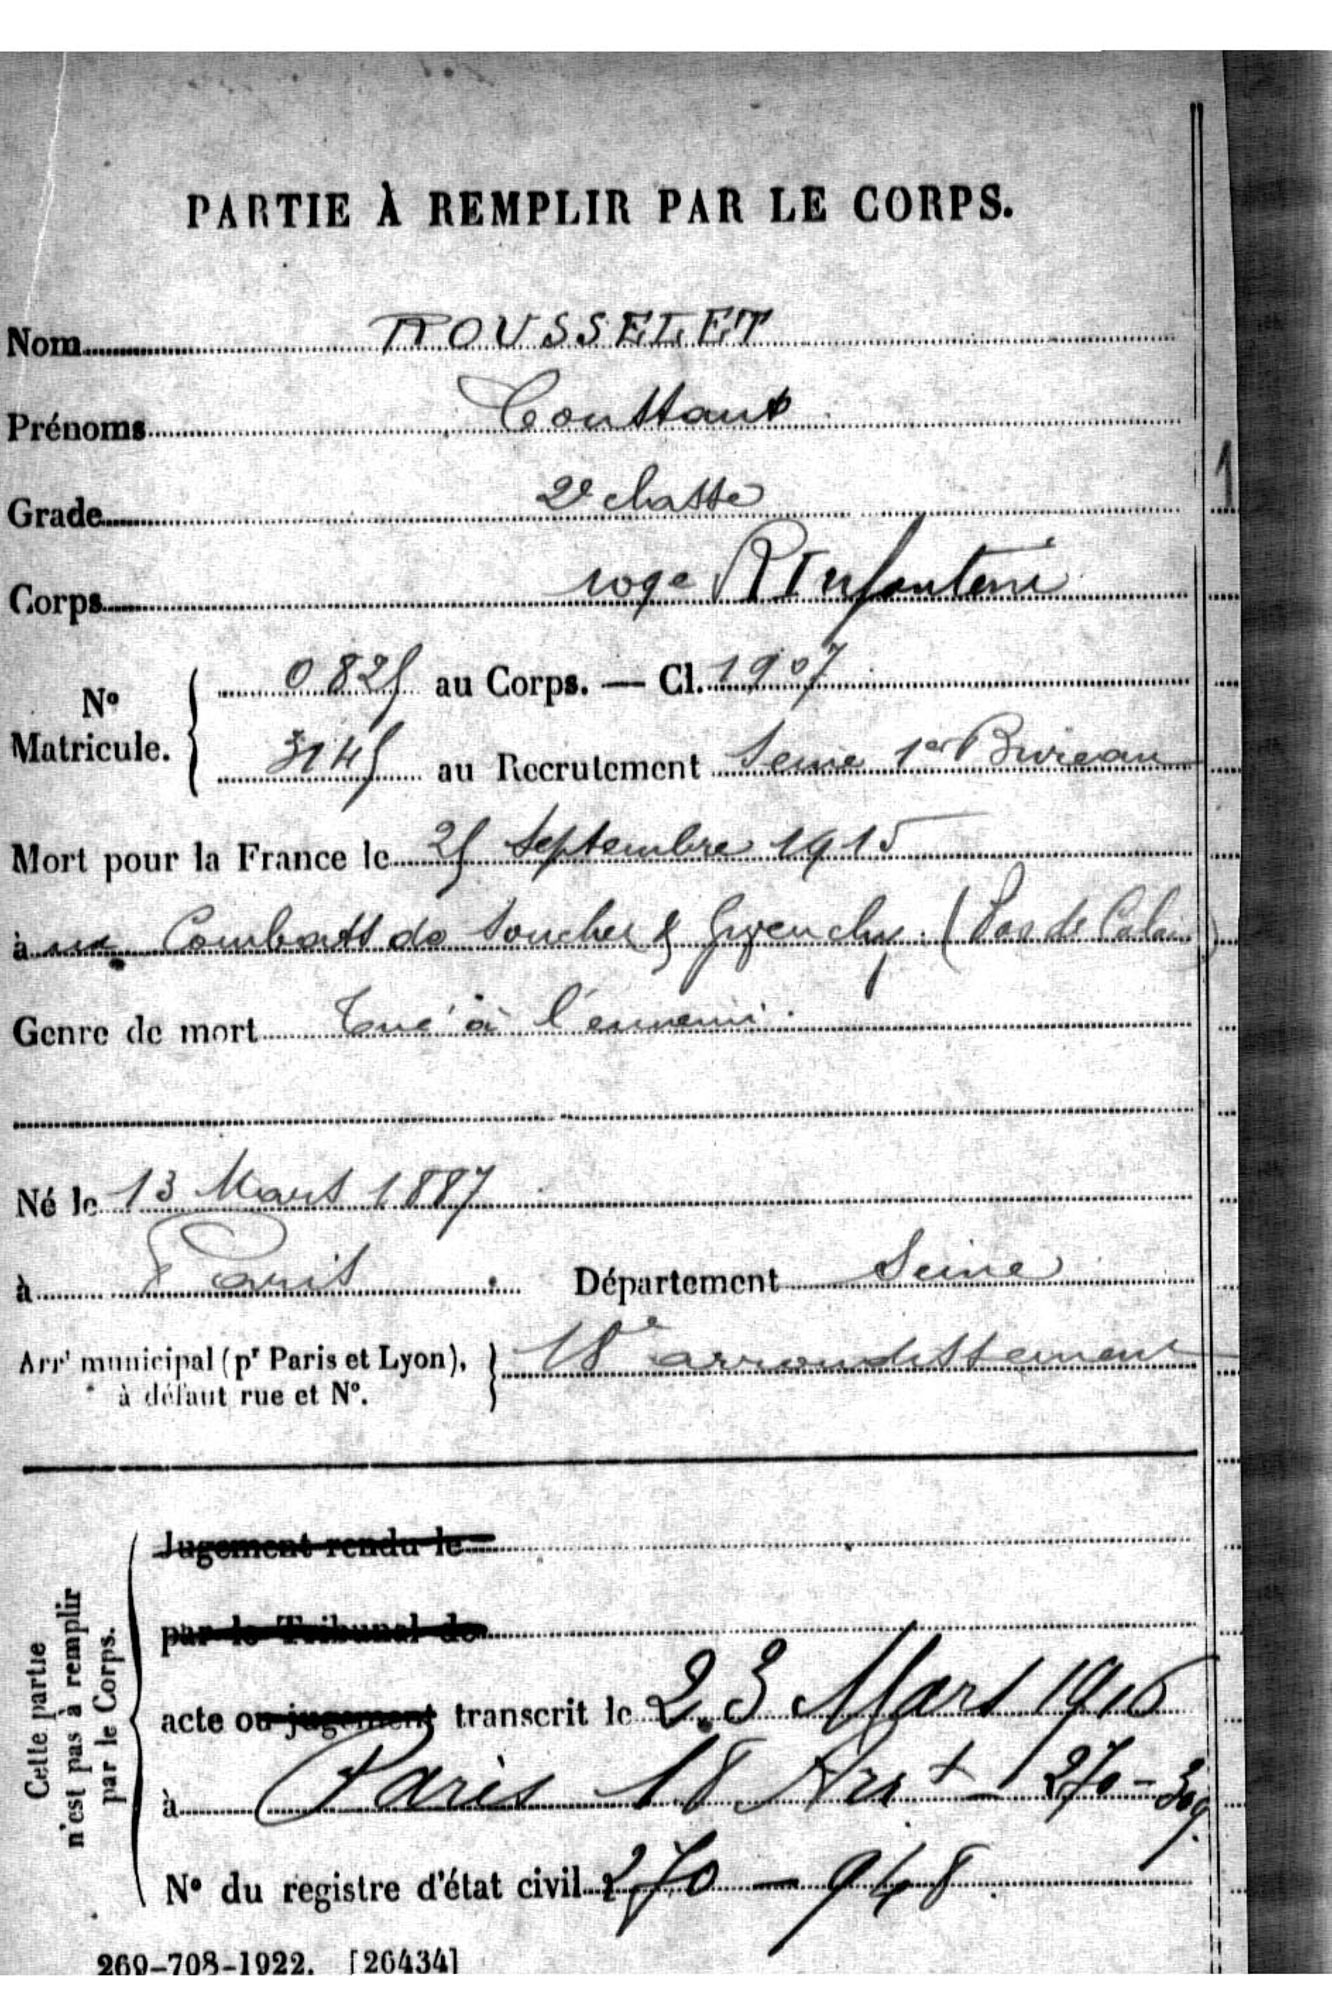 PARTIE À REMPLIR PAR LE CORPS.
Nom ROUSSELET
Prénoms Constant
Grade 2e classe
Corps 109e R Infanterie
No Matricule. { 0825 au Corps. — Cl. 1907
3145 au Recrutement Seine 1er Bureau
Mort pour la France le 25 Septembre 1915
à Combats de Souchez & Givenchy. (Pas de Calais)
Genre de mort Tué à l'ennemi.
Né le 13 Mars 1887
à Paris Département Seine
Arrt municipal (pr Paris et Lyon), à défaut rue et No. } 18e arrondissement
Cette partie n'est pas à remplir par le Corps.
Jugement rendu le
par le Tribunal de
acte ou jugement transcrit le 23 Mars 1916
à Paris 18 Arrt - 270-309.
No du registre d'état civil 270 - 948
269-708-1922. [26434]